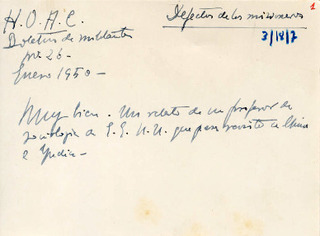 H.O.A.C.
Defectos de los misioneros
1
Boletín de militantes
3/18/7
nº 26 -
Enero 1950 -
Muy bien. Un relato de un profesor de
sociología de E.E. U.U. que para